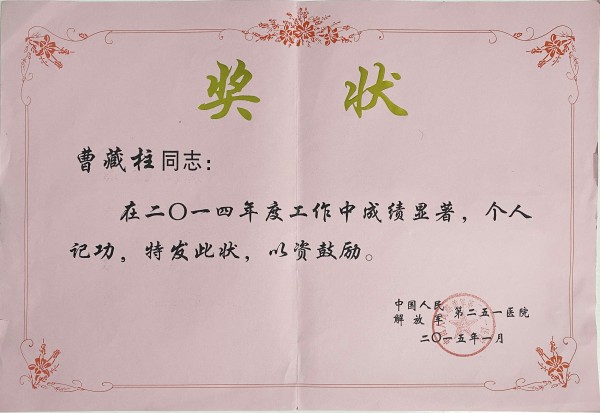 奖状
曹藏柱同志：
在二〇一四年度工作中成绩显著，个人
记功，特发此状，以资鼓励。
中国人民
解放军 第二五一医院
二〇一五年一月